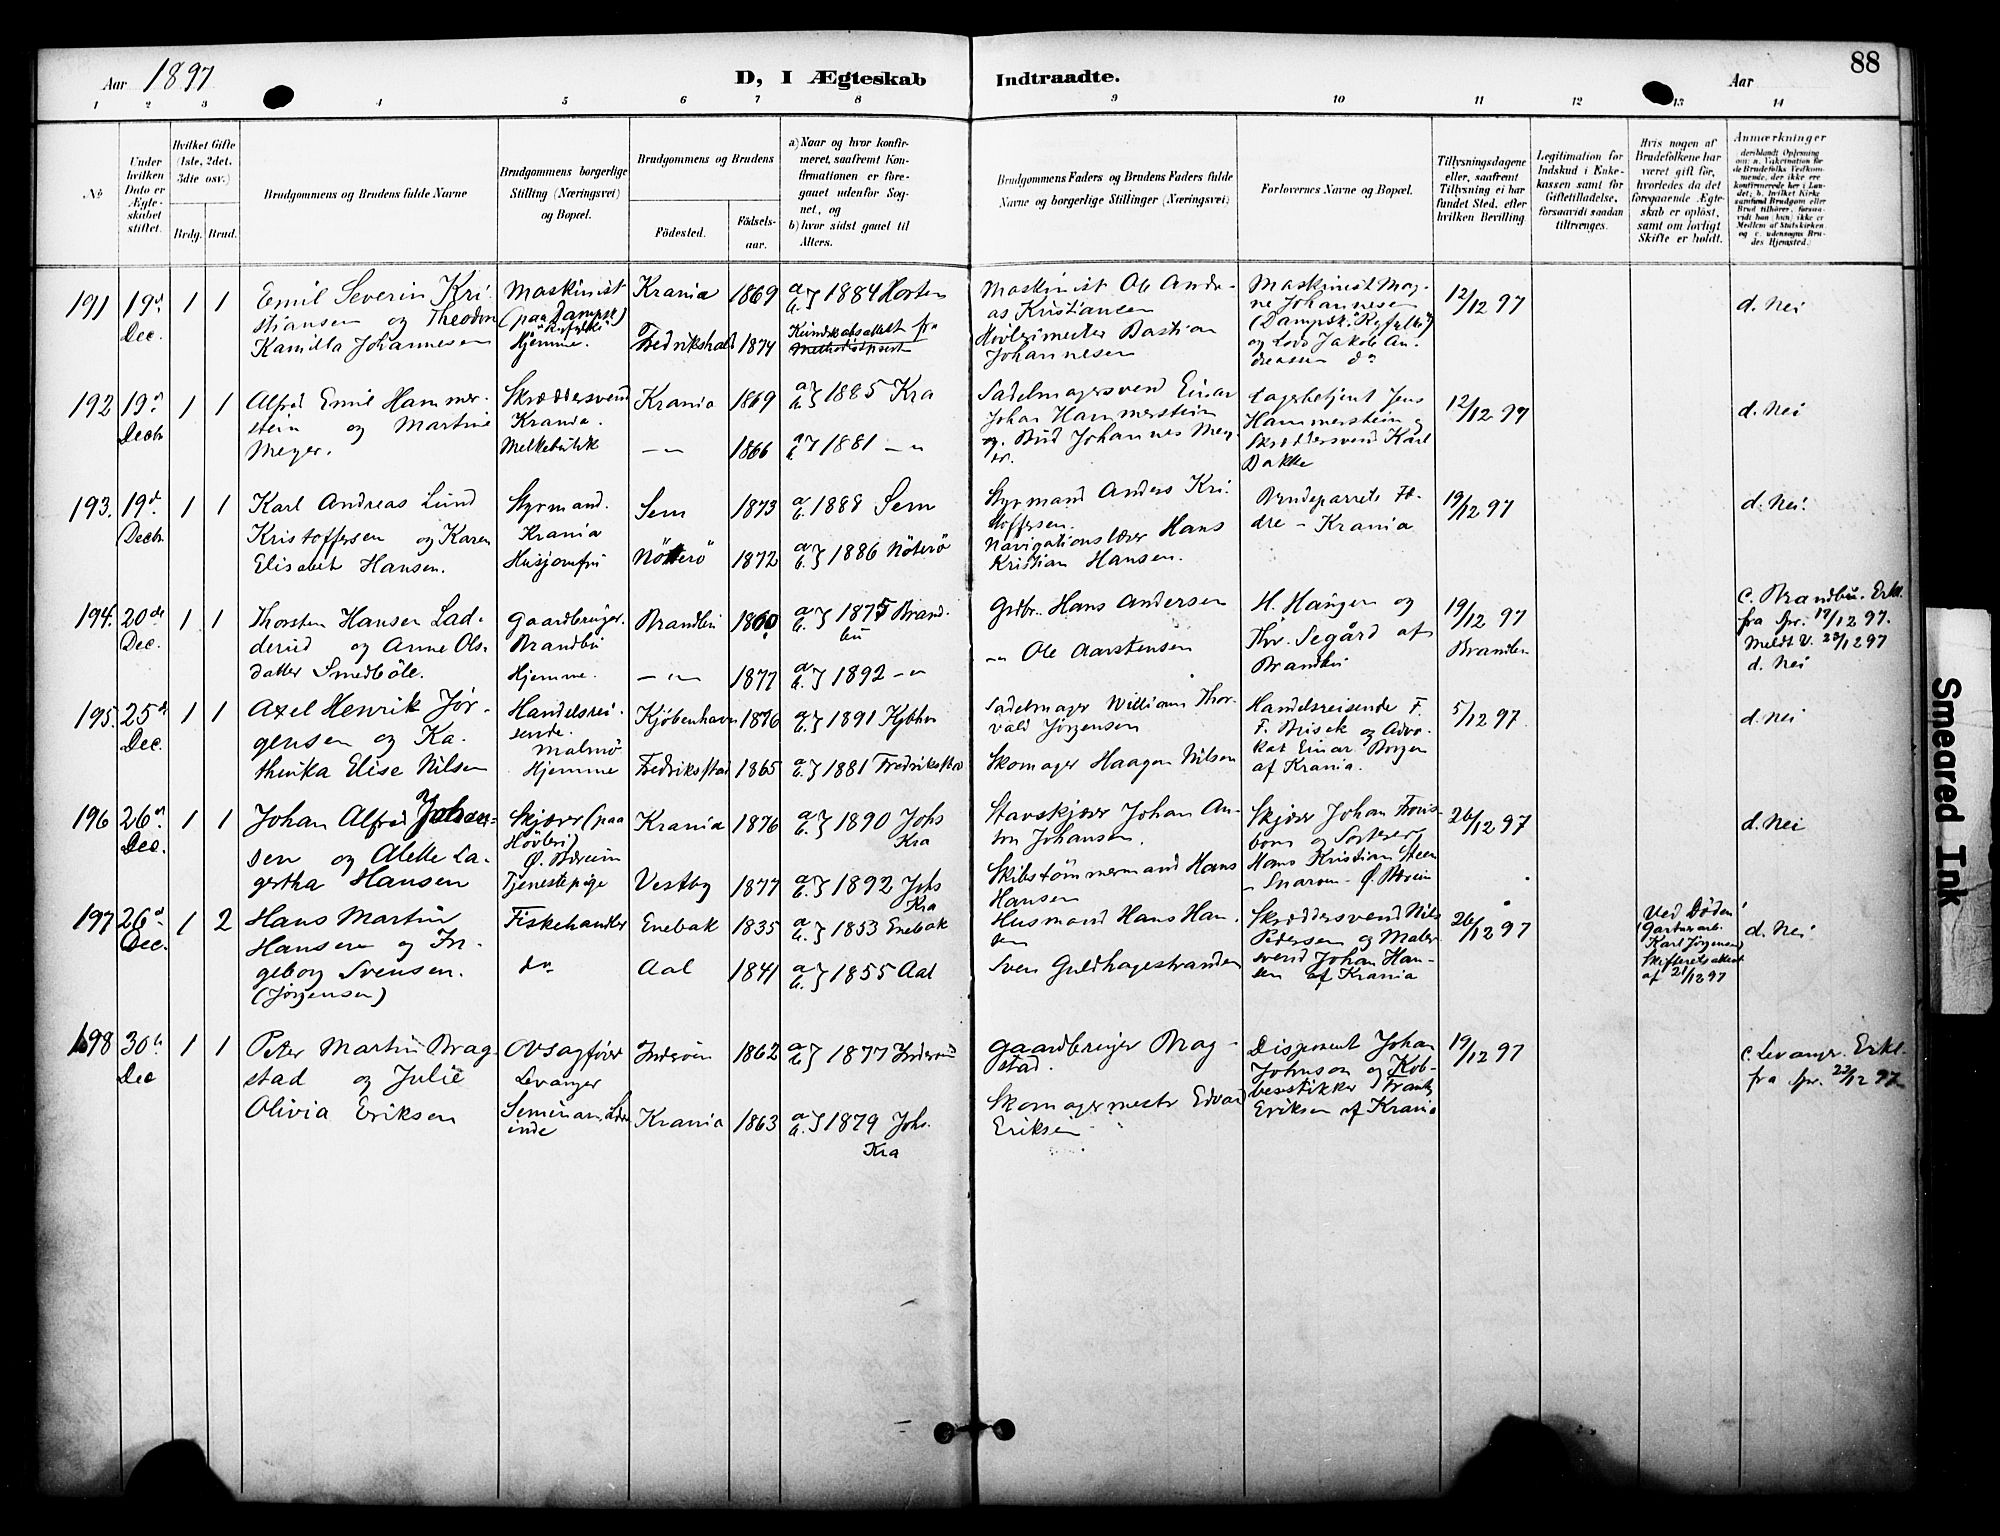 88
Aar 1897
D, I Ægteskab Indtraadte.
Aar
1 2 3 4 5 6 7 8 9 10 11 12 13 14
No
Under hvilken Dato er Ægteskabet stiftet.
Hvilket Gifte (1ste, 2det, 3die osv.)
Brdg. Brud.
Brudgommens og Brudens fulde Navne
Brudgommens borgerlige Stilling (Næringsvei) og Bopæl.
Brudgommens og Brudens
Födested.
Födsels-aar.
a) Naar og hvor konfirmeret, saafremt Konfirmationen er foregaaet udenfor Sognet, og
b) hvor sidst gaaet til Alters.
Brudgommens Faders og Brudens Faders fulde Navne og borgerlige Stillinger (Næringsvei)
Forlovernes Navne og Bopæl.
Tillysningsdagene eller, saafremt Tillysning ei har fundet Sted, efter hvilken Bevilling
Legitimation for Indskud i Enkekassen samt for Giftetilladelse, forsaavidt saadan tiltrænges.
Hvis nogen af Brudefolkene har været gift før, hvorledes da det foregaaende Ægteskab er opløst, samt om lovligt Skifte er holdt.
Anmærkninger
191 19d Dec. 1 1
Emil Severin Kri-
stiansen og Theodora
Kamilla Johannesen
Maskinist
(paa Dampsk.
"Ryfylke")
Hjemme.
Krania 1869 a b } 1884 Horten
Fredrikshald 1874
Maskinist Ole Andre-
as Kristiansen
Høvlerimester Bastian
Johannesen
Maskinist Mag-
ne Johannesen
(Dampsk. "Ryfylke")
og Lods Jakob An-
dreassen do
12/12 97
d. Nei
192 19d Decb 1 1
Alfred Emil Hammer-
stein og Martine
Meyer.
Skræddersvend
Krania.
Melkebutik
Krania 1869 a b } 1885 Kra
—"— 1866 a b } 1881 —"
Sadelmagersvend Einar
Johan Hammerstein
og Bud Johannes Mey-
er.
Lagerbetjent Jens
Hammerstein og
Skræddersvend Karl
Bakke
12/12 97
d. Nei
193. 19d. Decb 1 1
Karl Andreas Lund
Kristoffersen og Karen
Elisabet Hansen.
Styrmand.
Krania
Husjomfru
Sem 1873 a b } 1888 Sem
Nötterö 1872 a b } 1886 Nöterö
Styrmand Anders Kri-
stoffersen.
Navigationslærer Hans
Kristian Hansen.
Brudeparrets Fæ-
dre – Krania
19/12 97
d. Nei.
194. 20de Dec. 1 1
Thorsten Hansen Lad-
derud og Anne Ols-
datter Smedböle.
Gaardbruger.
Brandbu
Hjemme.
Brandbu 1860 a b } 1875 Brand-
bu
—"— 1877 a b } 1892 —"
Grdbr. Hans Andersen
—"— Ole Aarstensen
H. Haugen og
Thr. Segård af
Brandbu
19/12 97
Brandbu
c. Brandbu. Erkl.
fra spr. 17/12 97.
Meldt V. 23/12 97
d. Nei
195. 25d Dec. 1 1
Axel Henrik Jör-
gensen og Ka-
thinka Elise Nilsen
Handelsrei-
sende.
Malmö
Hjemme
Kjöbenhavn 1876 a b } 1891 Kjbhvn
Fredriksstad 1865 a b } 1881 Fredriksstad
Sadelmager William Thor-
vald Jörgensen
Skomager Haagon Nilsen
Handelsreisende F.
F. Brisek og Advo-
kat Einar Borgen
af Krania.
5/12 97.
d. Nei
196 26d. Dec. 1 1
Johan Alfred Johan-
sen og Alette La-
gertha Hansen
Skjærer (paa
Høvleri)
Ø. Bærum
Tjenestepige
Krania 1876 a b } 1890 Johs
Kra
Vestby 1877 a b } 1892 Johs
Kra
Stavskjærer Johan An-
ton Johansen.
Skibstömmermand Hans
Hansen
Skjærer Johan
og Sorterer
Hans Kristian Steen
– Snaröen – Ø. Bærum
26/12 97
d. Nei
197 26d Dec. 1 2
Hans Martin
Hansen og In-
geborg Svensen.
(Jörgensen)
Fiskehandler
do
Enebak 1835 a b } 1853 Enebak
Aal 1841 a b } 1855 Aal
Husmand Hans Han-
sen
Sven Guldhagestranden
Skræddersvend Nils
Pedersen og Maler-
svend Johan Han-
sen af Krania
26/12 97
Ved Döden
(Gartnerarb.
Karl Jørgensen)
Skifteretsattest
af 21/12 97
d. Nei
198 30te Dec 1 1
Peter Martin Brag-
stad og Julie
Olivia Eriksen
Ovsagförer
Levanger
Seminarlærer-
inde
Inderöen 1862 a b } 1877 Inderöen
Krania 1863 a b } 1879 Johs.
Kra
Gaardbruger Brag-
stad.
Skomagermestr Edvard
Eriksen
Disponent Johan
Johnson og Kob-
berstikker Frantz
Eriksen af Krania
19/12 97
c. Levanger. Erkl.
fra spr. 23/12 97
Smeared Ink